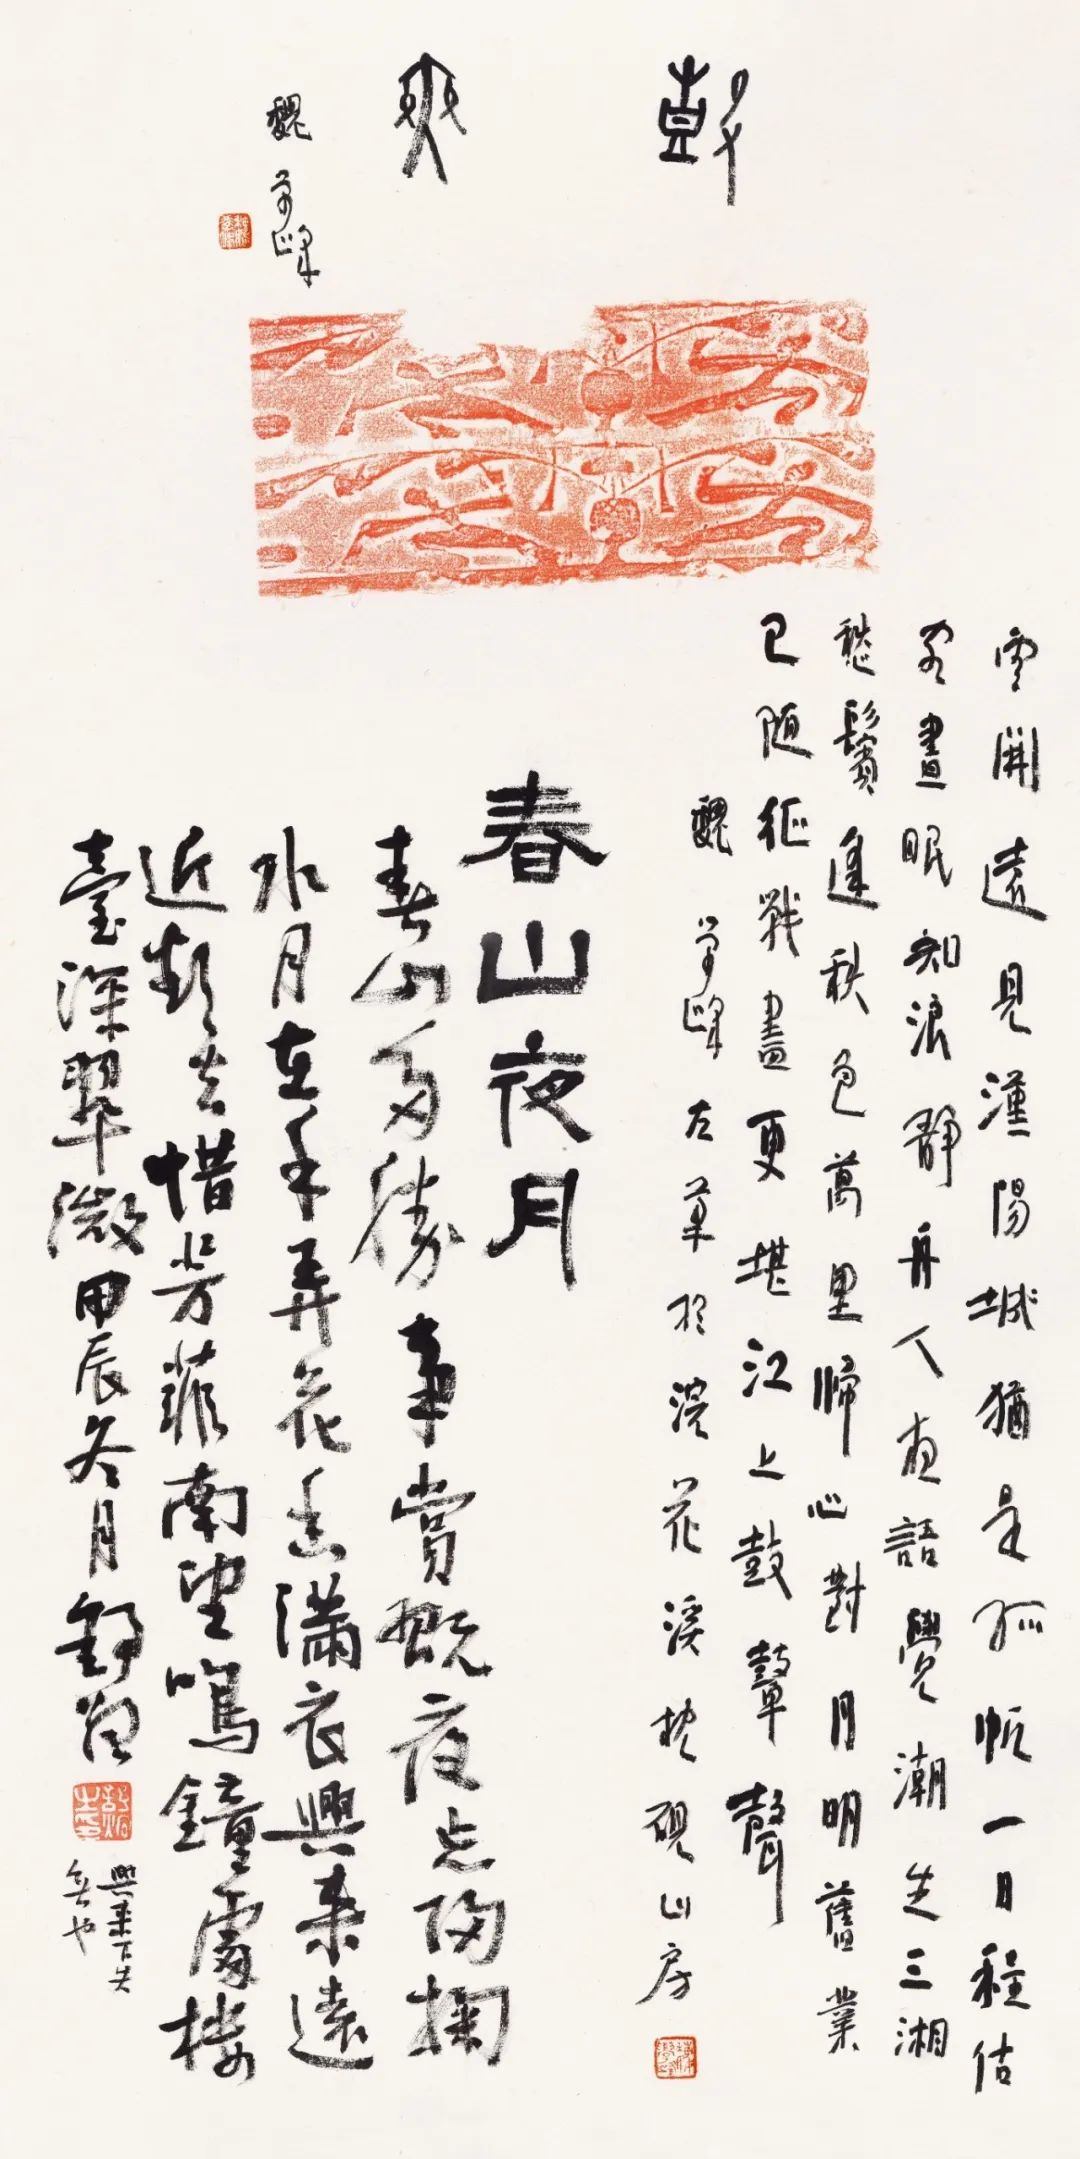 魏学峰
雲開遠見漢陽城猶是孤帆一日程估
客晝眠知浪靜舟人夜語覺潮生三湘
愁鬢逢秋色萬里歸心對月明舊業
已随征戰盡更堪江上鼓鼙聲
魏学峰左筆於浣花溪枕硯山房
春山夜月
春山多勝事賞翫夜忘歸掬
水月在手弄花香滿衣興来遠
近欲去惜芳菲南望鳴鐘處樓
臺深翠微甲辰冬月舒